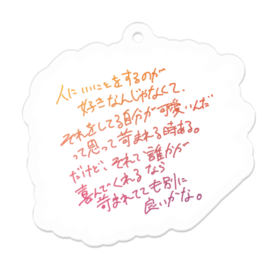 人にいいことをするのが
好きなんじゃなくて、
それをしてる自分が可愛いんだ
って思って苛まれる時ある。
だけど、それで誰かが
喜んでくれるなら
苛まれてても別に
良いかな。